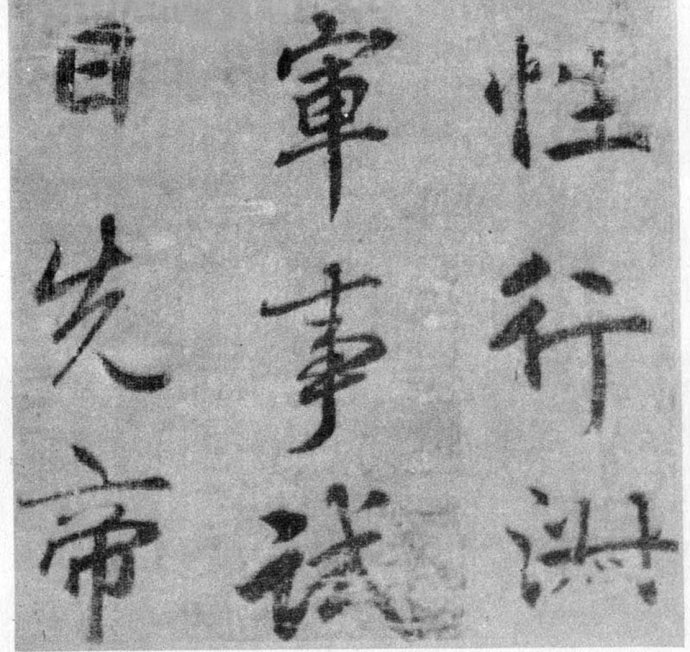 性行
軍事試
日先帝